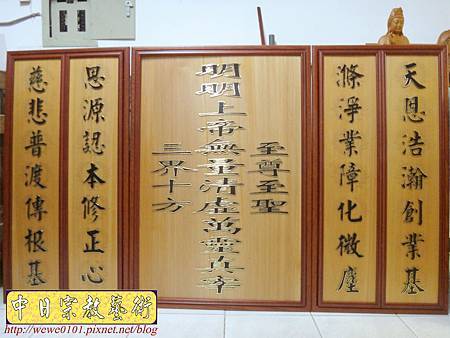 天恩浩瀚創業基
滌淨業障化微塵
至尊至聖
明明上帝無量清虛萬靈真宰
三界十方
思源認本修正心
慈悲普渡傳根基
中日宗教藝術
http://wewe0101.pixnet.net/blog